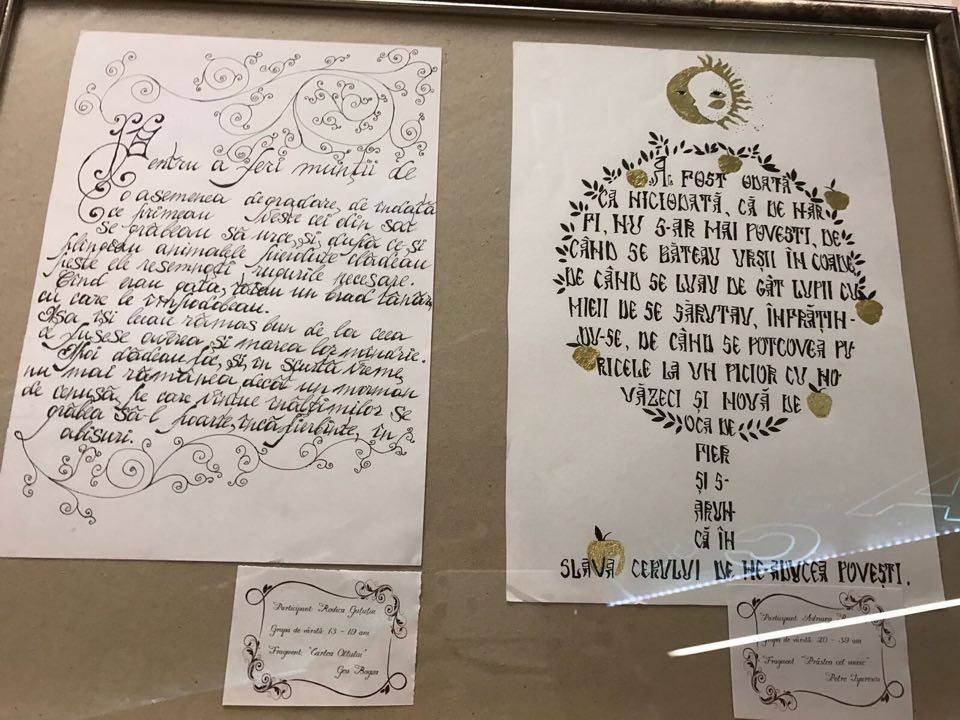 Pentru a feri munții de
o asemenea degradare, de îndată
ce primeau veste cei din sat
se grăbeau să urce, și, după ce-și
plîngeau animalele pierdute clădeau
peste ele resemnați rugurile necesare.
Cînd erau gata, un brad tânăr,
cu care le împodobeau.
Așa își luau rămas bun de la ceea
ce fusese averea și marea lor mîndrie.
Apoi dădeau foc, și, în scurtă vreme,
nu mai rămânea decât un morman
de cenușă, pe care vîntul înălțimilor se
grăbea să-l poarte, încă fierbinte, în
abisuri.
Participant: Rodica Guțuțui
Grupa de vârstă: 13 - 19 ani
Fragment: "Cartea Oltului"
Geo Bogza
A FOST ODATĂ
CA NICIODATĂ, CĂ DE N-AR
FI, NU S-AR MAI POVESTI, DE
CÂND SE BĂTEAU URȘII ÎN COADE,
DE CÂND SE LUAU DE GÂT LUPII CU
MIEII DE SE SĂRUTAU, ÎNFRĂȚIN-
DU-SE, DE CÂND SE POTCOVEA PU
RICELE LA UN PICIOR CU NO
VĂZECI ȘI NOUĂ DE
OCA DE
FIER
ȘI S-
ARUN-
CĂ ÎN
SLAVA CERULUI DE NE-ADUCEA POVEȘTI.
Participant:
Grupa de vârstă: 20 - 39 ani
Fragment:
Petre Ispirescu